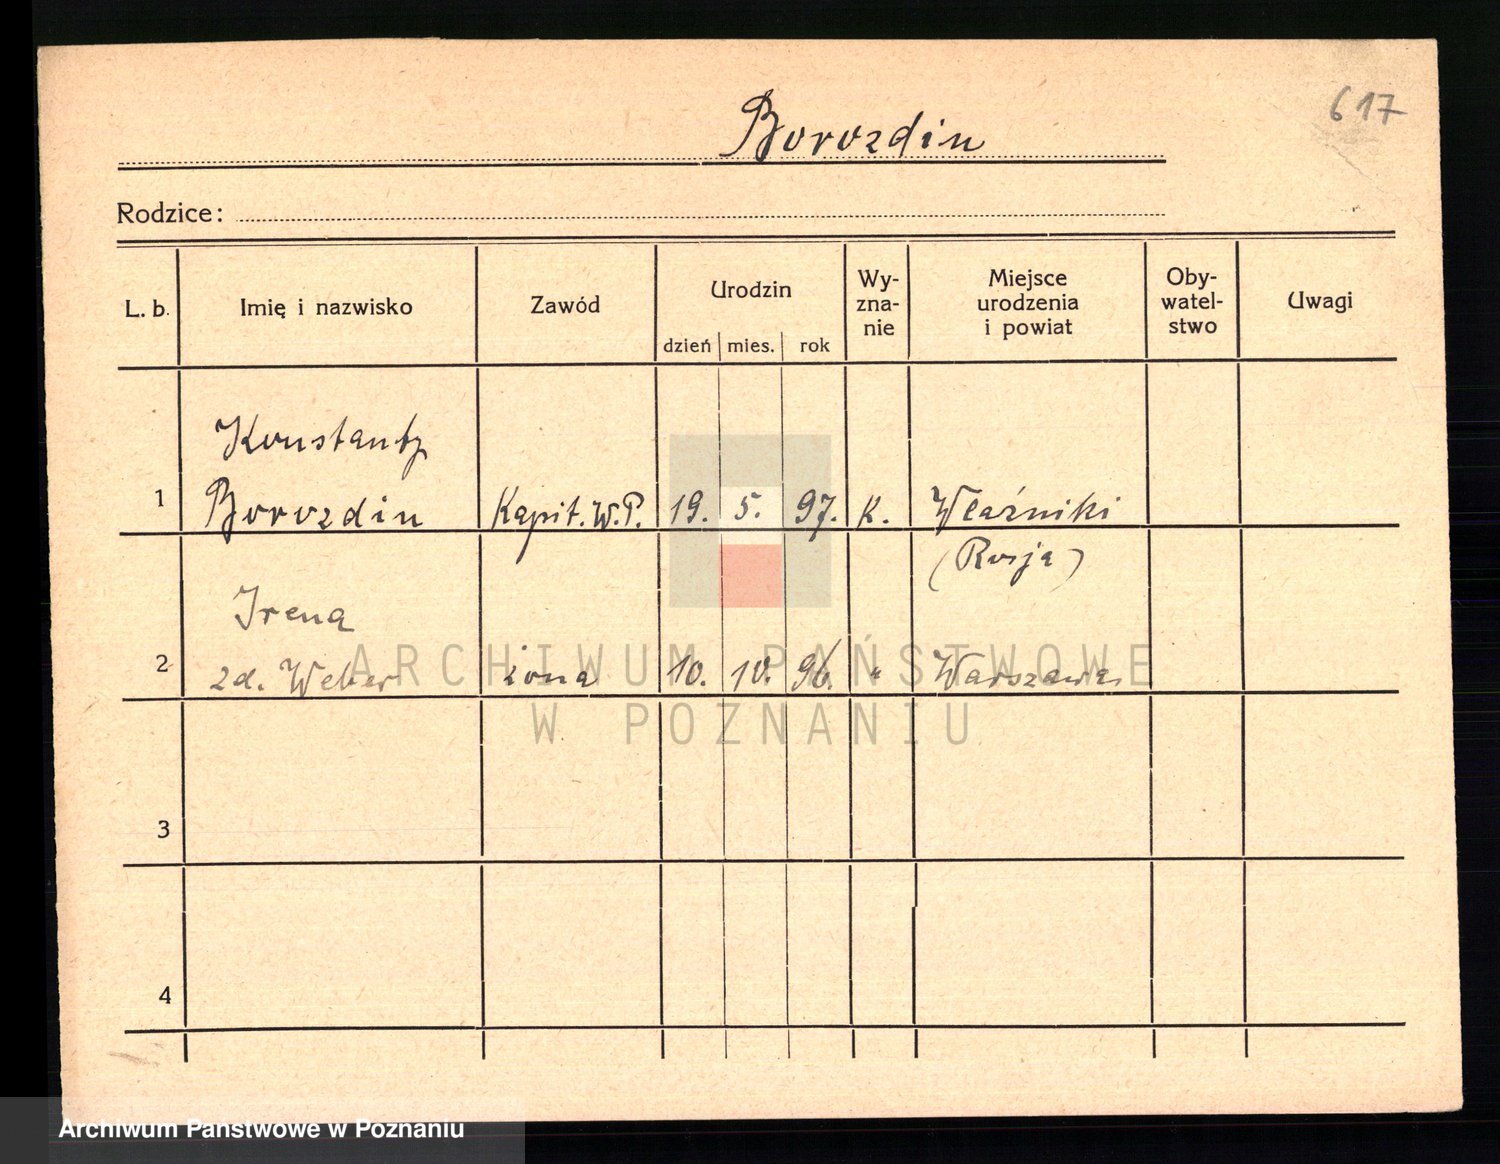 617
Borozdin
Rodzice:
L. b.
Imię i nazwisko
Zawód
Urodzin
dzień mies. rok
Wy-
zna-
nie
Miejsce
urodzenia
i powiat
Oby-
watel-
stwo
Uwagi
Konstanty
1 Borozdin Kapit. W.P. 19. 5. 97. K. Wlaźniki
(Rosja)
Irena
2 zd. Weber żona 10. 10. 96. " Warszawa
3
4
ARCHIWUM PAŃSTWOWE
W POZNANIU
Archiwum Państwowe w Poznaniu